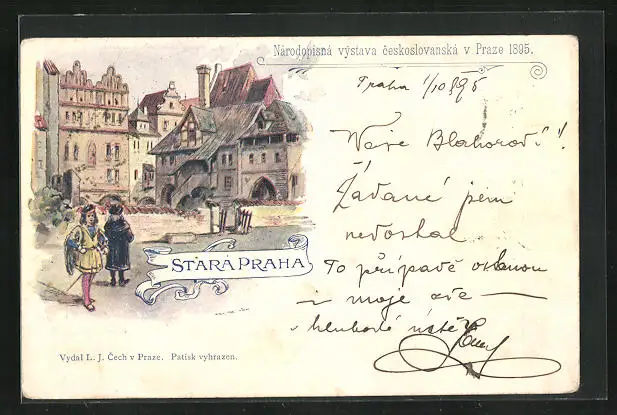 Národopisná výstava českoslovanská v Praze 1895.
Praha 1/10 895
Vaše Blahorodí!
Žádané jsem
nedostal
To případě
i moje
hluboké úctě
STARÁ PRAHA
Vydal L. J. Čech v Praze. Patisk vyhrazen.